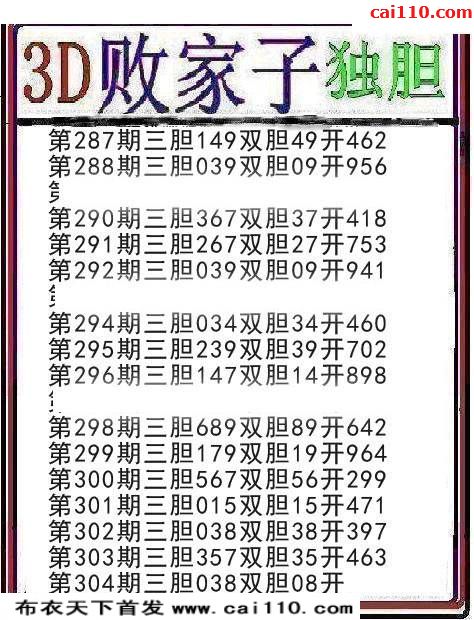 cai110.com
3D败家子独胆
第287期三胆149双胆49开462
第288期三胆039双胆09开956
第
第290期三胆367双胆37开418
第291期三胆267双胆27开753
第292期三胆039双胆09开941
第294期三胆034双胆34开460
第295期三胆239双胆39开702
第296期三胆147双胆14开898
第298期三胆689双胆89开642
第299期三胆179双胆19开964
第300期三胆567双胆56开299
第301期三胆015双胆15开471
第302期三胆038双胆38开397
第303期三胆357双胆35开463
第304期三胆038双胆08开
布衣天下首发 www.cai110.com